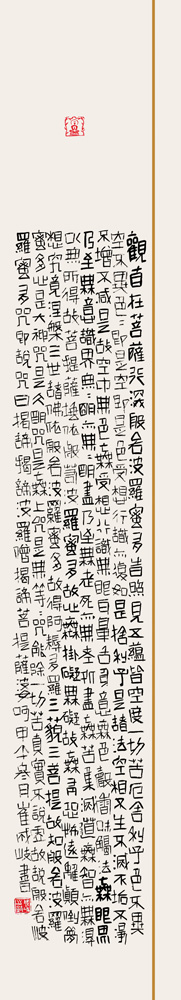 觀自在菩薩行深般若波羅蜜多時照見五蘊皆空度一切苦厄舍利子色不異
空空不異色色即是空空即是色受想行識亦復如是舍利子是諸法空相不生不滅不垢不淨
不增不減是故空中無色無受想行識無眼耳鼻舌身意無色聲香味觸法無眼界
乃至無意識界無無明亦無無明盡乃至無老死亦無老死盡無苦集滅道無智亦無得
以無所得故菩提薩埵依般若波羅蜜多故心無掛礙無掛礙故無有恐怖遠離顛倒夢
想究竟涅槃三世諸佛依般若波羅蜜多故得阿耨多羅三藐三菩提故知般若波羅
蜜多是大神咒是大明咒是無上咒是無等等咒能除一切苦真實不虛故說般若波
羅蜜多咒即說咒曰揭諦揭諦波羅揭諦波羅僧揭諦菩提薩婆呵甲午冬月崔書